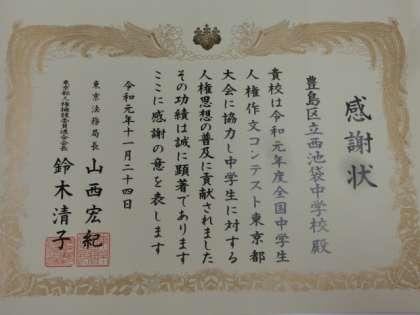 感謝状
豊島区立西池袋中学校 殿
貴校は令和元年度全国中学生
人権作文コンテスト東京都
大会に協力し中学生に対する
人権思想の普及に貢献されました
その功績は誠に顕著であります
ここに感謝の意を表します
令和元年十一月二十四日
東京法務局長 山西宏紀
東京都人権擁護委員連合会会長 鈴木清子